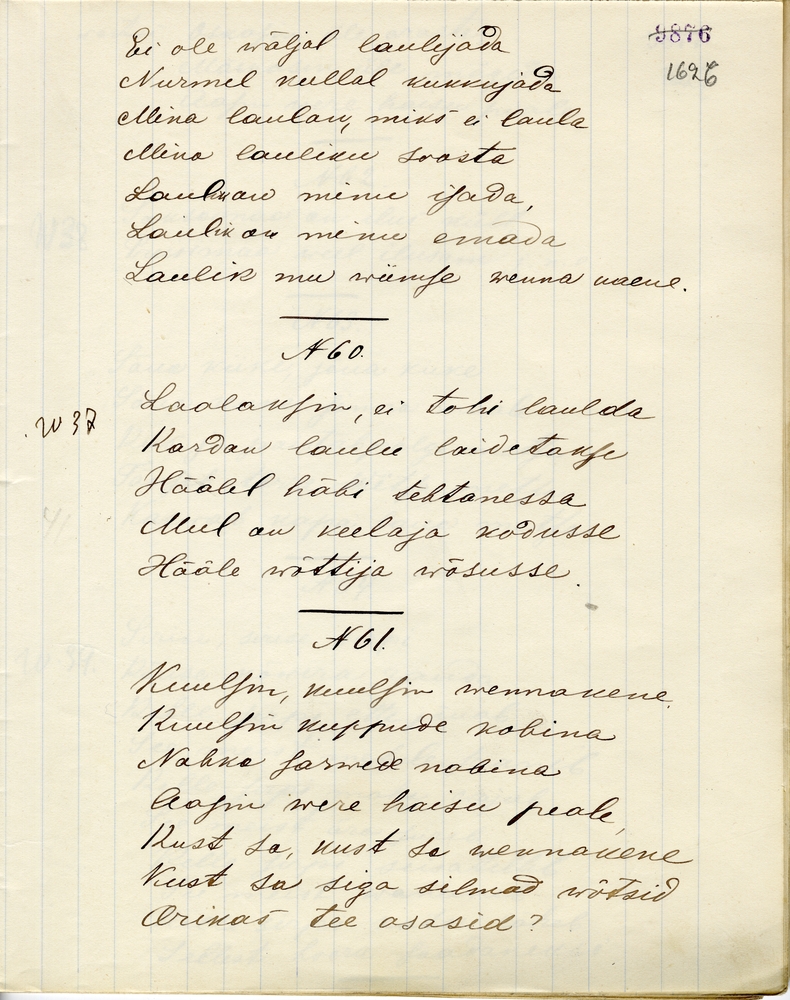 9876
1626
Ei ole wäljal laulijada
Nurmel kullal kukkujada
Mina laulan, miks ei laula
Mino lauliku soosta
Laulik on minu isada,
Laulik on minu emada
Laulik mu wiimse wenna naene.
N 60.
W 37
Laolaksin, ei tohi laulda
Kardan laulu laidetakse
Häälel häbi tehtanessa
Mul on keelaja kodusse
Hääle wõttija wõsusse.
N 61.
Kuulsin, kuulsin wennakene
Kuulsin kuppude kobina
Nahka sarwede nabina
Aasin were haisu peale,
Kust sa, kust sa wennakene
Kust sa siga silmad wõtsid
Orikas tee osasid?